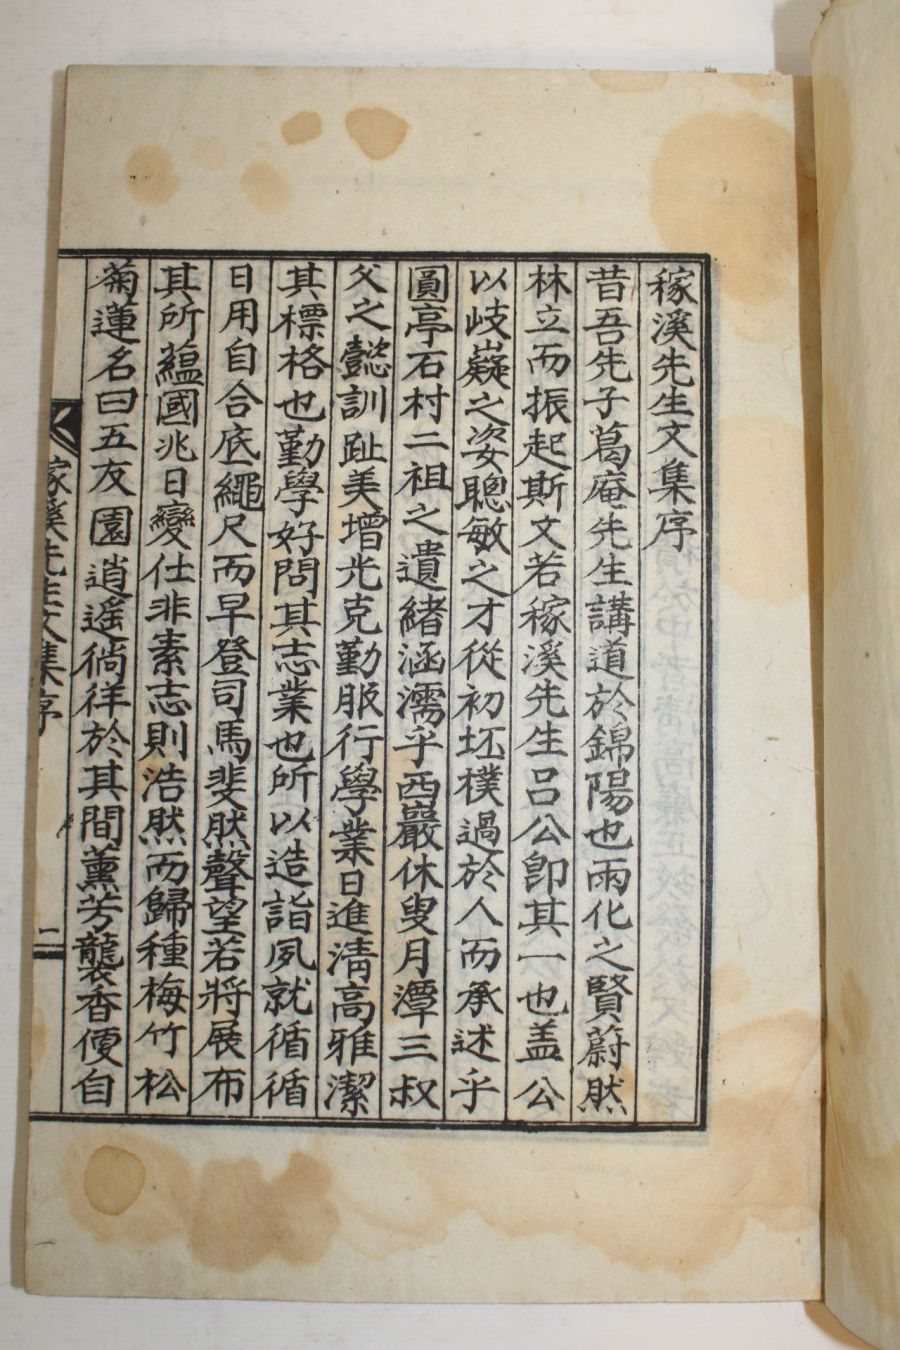 稼溪先生文集序
昔吾先子葛庵先生講道於錦陽也雨化之賢蔚然
林立而振起斯文若稼溪先生呂公卽其一也盖公
以岐嶷之姿聰敏之才從初坯樸過於人而承述乎
圓亭石村二祖之遺緖涵濡乎西巖休叟月潭三叔
父之懿訓趾美增光克勤服行學業日進淸高雅潔
其標格也勤學好問其志業也所以造詣夙就循循
日用自合底繩尺而早登司馬斐然聲望若將展布
其所蘊國兆日變仕非素志則浩然而歸種梅竹松
菊蓮名曰五友園逍遥徜徉於其間薰芳襲香便自
稼溪先生文集序
一